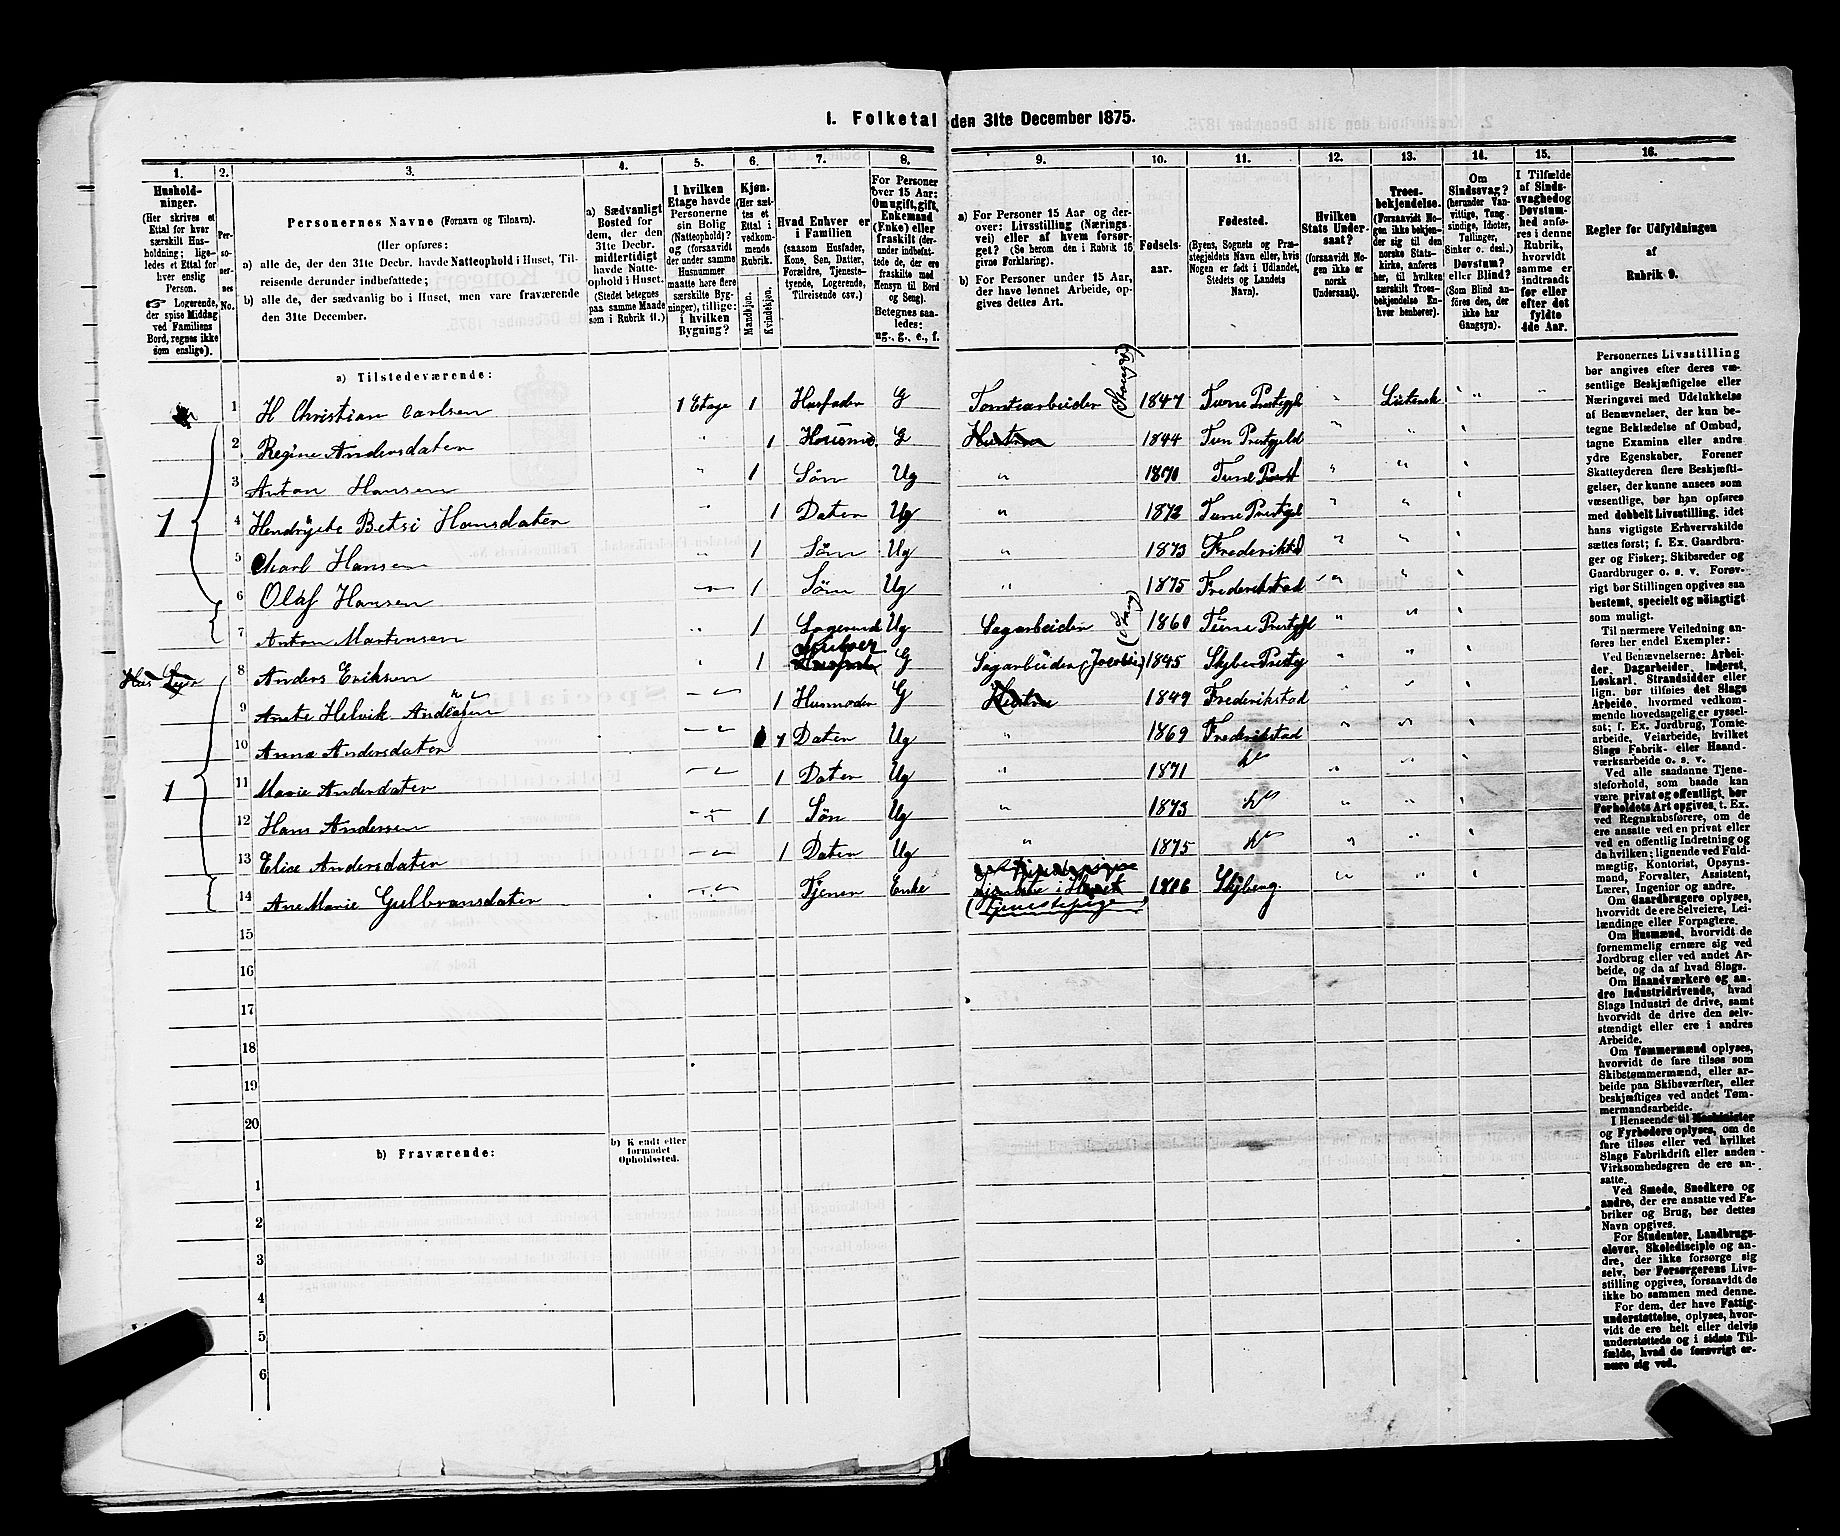 1. Folketal den 31te December 1875.
1. 2. 3. 4. 5. 6. 7. 8. 9. 10. 11. 12. 13. 14. 15. 16.
Hushold-
ninger.
(Her skrives et
Ettal for hver
særskilt Hus-
holdning; lige-
ledes et Ettal for
hver enslig
Person.
☞ Logerende,
der spise Middag
ved Familiens
Bord, regnes ikke
som enslige).
Per-
so-
ner-
nes
No.
Personernes Navne (Fornavn og Tilnavn).
(Her opføres:
a) alle de, der den 31te Decbr. havde Natteophold i Huset, Til-
reisende derunder indbefattede;
b) alle de, der sædvanlig bo i Huset, men vare fraværende
den 31te December.
a) Sædvanligt
Bosted for
dem, der den
31te Decbr.
midlertidigt
havde Natte-
ophold i Huset.
(Stedet betegnes
paa samme Maade
som i Rubrik 11.)
I hvilken
Etage havde
Personerne
sin Bolig
(Natteophold)?
og (forsaavidt
der under samme
Husnummer
maatte høre flere
særskilte Byg-
ninger), tillige:
i hvilken
Bygning?
Kjøn.
(Her sæt-
tes et
Ettal i
vedkom-
mende
Rubrik.
Mandkjøn.
Kvindekjøn.
Hvad Enhver er
i Familien
(saasom Husfader,
Kone, Søn, Datter,
Forældre, Tjeneste-
tyende, Logerende,
Tilreisende csv.)
For Personer
over 15 Aar:
Om ugift, gift,
Enkemand
(Enke) eller
fraskilt (der-
under indbefat-
tede de, der ere
fraskilte med
Hensyn til Bord
og Seng).
Betegnes saa-
ledes:
ug., g., e., f.
a) For Personer 15 Aar og der-
over: Livsstilling (Nærings-
vei) eller af hvem forsør-
get? (Se herom den i Rubrik 16
givne Forklaring).
b) For Personer under 15 Aar,
der have lønnet Arbeide, op-
gives dettes Art.
Fødsels-
aar.
Fødested.
(Byens, Sognets og Præ-
stegjeldets Navn eller, hvis
Nogen er født i Udlandet,
Stedets og Landets
Navn).
Hvilken
Stats Under-
saat?
(forsaavidt No-
gen ikke er
norsk
Undersaat).
Troes-
bekjendelse.
(Forsaavidt No-
gen ikke bekjen-
der sig til den
norske Stats-
kirke, anføres
her, til hvilken
særskilt Troes-
bekjendelse En-
hver henhører).
Om
Sindssvag?
(herunder Van-
vittige, Tung-
sindige, Idioter,
Tullinger,
Sinker o. desl.)
Døvstum?
eller Blind?
(Som Blind an-
føres den, der
ikke har
Gangsyn).
I Tilfælde
af Sinds-
svaghed og
Døvstum-
hed anfø-
res i denne
Rubrik,
hvorvidt
samme er
indtraadt
før eller
efter det
fyldte
4de Aar.
Regler for Udfyldningen
af
Rubrik 9.
a) Tilstedeværende:
1 H Christian Carlsen 1 Etage 1 Husfader G Tomtearbeider 1847 Tune Prestegjl " Lutersk " "
2 Regine Andersdaten " 1 Housmo. G Hustrue 1844 Tun Prestgjeld " " "
3 Anton Hansen " 1 Søn Ug " 1870 Tune Prest " " "
1 4 Hendrijete Betsi Hansdaten " 1 Daten Ug " 1872 Tune Prestgjel " " "
5 Charl Hansen " 1 Søn Ug " 1873 Frederiktd " " "
6 Olaf Hansen " 1 Søn Ug " 1875 Frederikstad " " "
7 Anton Martensen " 1 Logerende Ug Sagarbeider (Brug) 1860 Tune Prestgjl " " "
8 Anders Eriksen " 1 Husfader G Sagarbeider 1845 Skjber Prestg " " "
9 Anete Helvik Andersen " 1 Husmoder G Hustrue 1849 Frederikstad " " "
10 Anna Andersdaten " 1 Daten Ug " 1869 Frederikstad " " "
1 11 Marie Andersdaten " 1 Daten Ug " 1871 do " " "
12 Hans Andersen " 1 Søn Ug " 1873 do " " "
13 Elise Andersdaten " 1 Daten Ug " 1875 do " " "
14 Ane Marie Gulbransdaten " Tjener Enke i Huset 1806 Skjberg. " " "
(Tjenestepige)
15
16
17
18
19
20
b) Fraværende:
b) Kjendt eller
formodet
Opholdssted.
1
2
3
4
5
6
Personernes Livsstilling
bør angives efter deres væ-
sentlige Beskjæftigelse eller
Næringsvei med Udelukkelse
af Benævnelser, der kun be-
tegne Beklædelse af Ombud,
tagne Examina eller andre
ydre Egenskaber. Forener
Skatteyderen flere Beskjæfti-
gelser, der kunne ansees som
væsentlige, bør han opføres
med dobbelt Livsstilling, idet
hans vigtigste Erhvervskilde
sættes først; f. Ex. Gaardbru-
ger og Fisker; Skibsreder og
Gaardbruger o. s. v. Forøv-
rigt bør Stillingen opgives saa
bestemt, specielt og nöiagtigt
som muligt.
Til nærmere Veiledning an-
føres her endel Exempler:
Ved Benævnelserne: Arbei-
der, Dagarbeider, Inderst,
Løskarl, Strandsidder eller
lign. bør tilføies det Slags
Arbeide, hvormed vedkom-
mende hovedsagelig er syssel-
sat; f. Ex. Jordbrug, Tomte-
arbeide, Veiarbeide, hvilket
Slags Fabrik- eller Haand-
værksarbeide o. s. v.
Ved alle saadanne Tjene-
steforhold, som baade kan
være privat og offentligt, bør
Forholdets Art opgives, t. Ex.
ved Regnskabsførere, om de
ere ansatte ved en privat eller
ved en offentlig Indretning og
da hvilken; lignende ved Fuld-
mægtig, Kontorist, Opsyns-
mand, Forvalter, Assistent,
Lærer, Ingeniør og andre.
Om Gaardbrugere oplyses,
hvorvidt de ere Selveiere, Lei-
lændinge eller Forpagtere.
Om Husmænd, hvorvidt de
fornemmelig ernære sig ved
Jordbrug eller ved andet Ar-
beide, og da af hvad Slags.
Om Haandværkere og an-
dre Industridrivende, hvad
Slags Industri de drive, samt
hvorvidt de drive den selv-
stændigt eller ere i andres
Arbeide.
Om Tømmermænd oplyses,
hvorvidt de fare tilsøs som
Skibstømmermænd, eller ar-
beide paa Skibsværfter, eller
beskjæftiges ved andet Tøm-
mermandsarbeide.
I Henseende til Maskinister
og Fyrbødere oplyses, om de
fare tilsøs eller ved hvilket
Slags Fabrikdrift eller anden
Virksomhedsgren de ere an-
satte.
Ved Smede, Snedkere og
andre, der ere ansatte ved Fa-
briker og Brug, bør dettes
Navn opgives.
For Studenter, Landbrugs-
elever, Skoledisciple og an-
dre, der ikke forsørge sig
selv, bør Forsørgerens Livs-
stilling opgives, forsaavidt de
ikke bo sammen med denne.
For dem, der have Fattig-
understøttelse, oplyses, hvor-
vidt de ere helt eller delvis
understøttede og i sidste Til-
fælde, hvad de forøvrigt er-
nære sig ved.